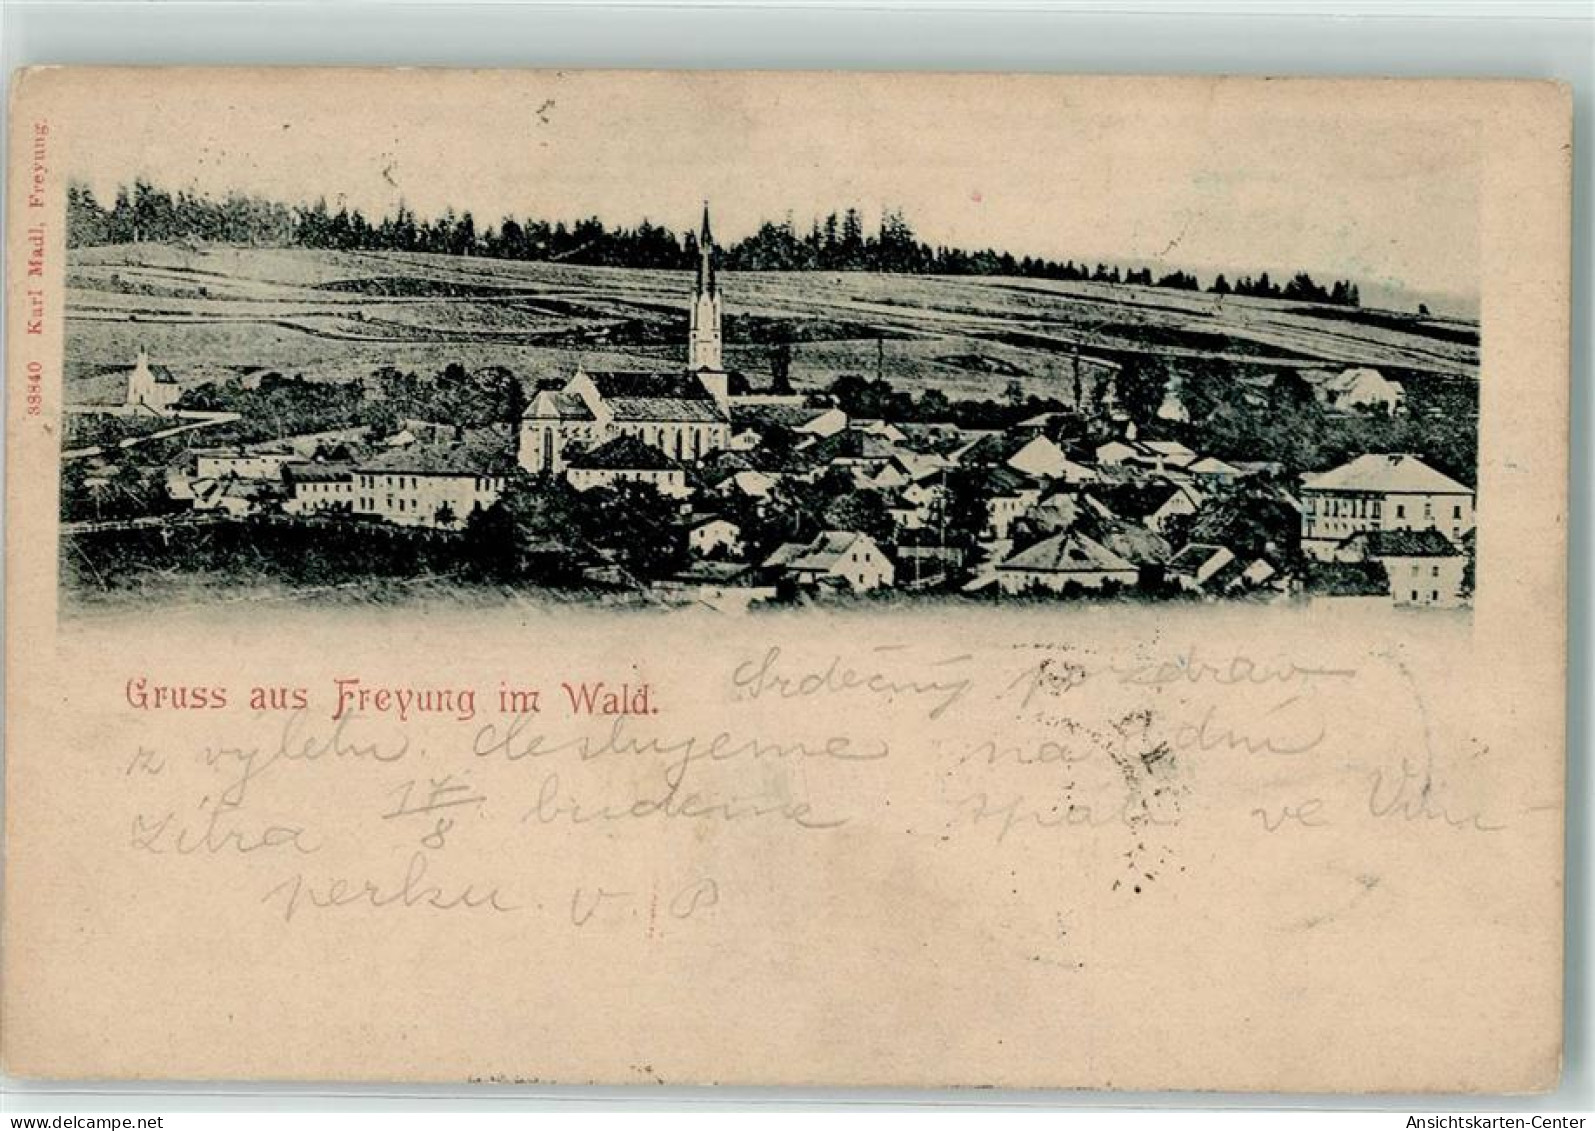 38840 Karl Madl, Freyung.
Gruss aus Freyung im Wald.
Srdečný pozdrav
z výletu. na dní
Zítra 17/8. budeme zpátk ve Vim-
perku. v. P
Ansichtskarten-Center
delcampe.net